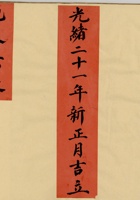 光緒二十一年新正月吉立